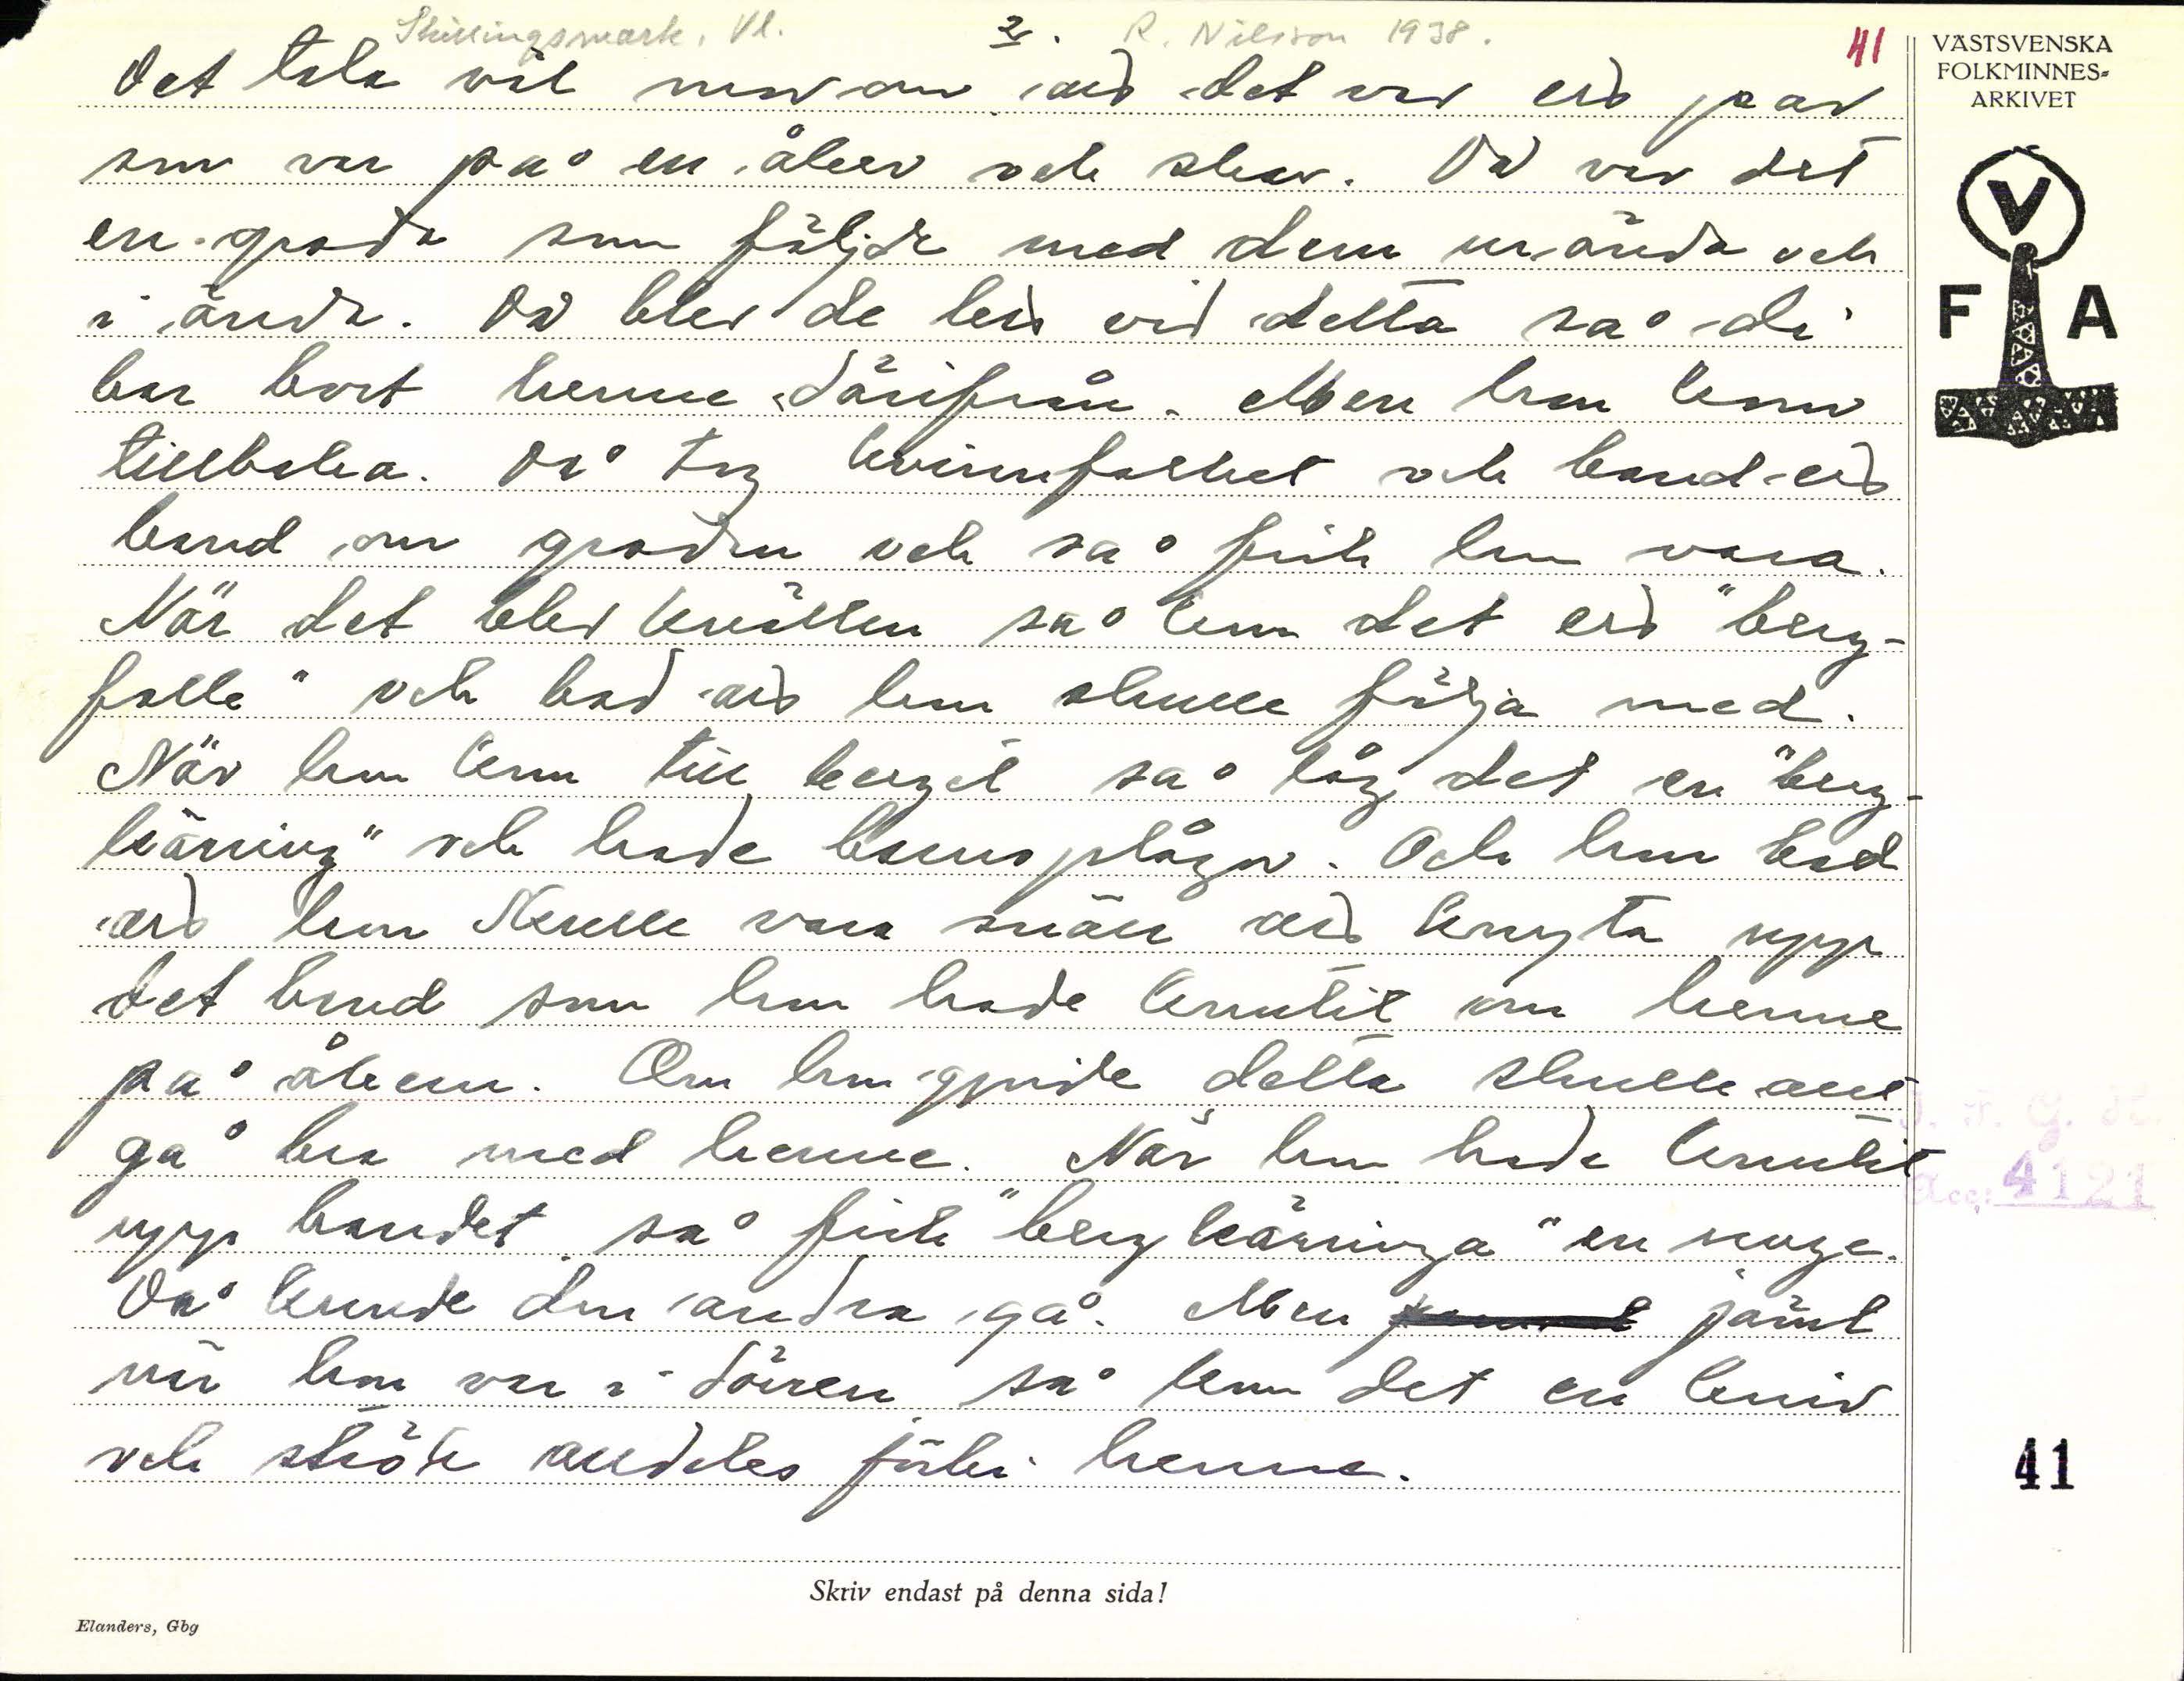 Skillingsmark, Vl. 2. R. Nilsson 1938. 41
Det tala väl mor om att det var ett par
som var på en åker och skar. Då var det
en groda som följde med dem ur ända och
i ända. Då blev de led vid detta så di
bar bort henne därifrån. Men hon kom
tillbaka. Då tog kvinnfolket och band ett
band om grodan och så fick hon vara.
När det blev kvällen så kom det ett "berg-
folk" och bad att hon skulle följa med.
När hon kom till berget så låg det en "berg-
käring" och hade barnsplågor. Och hon bad
att hon skulle vara snäll att knyta upp
det band som hon hade knutit om henne
på åkern. Om hon gjorde detta skulle allt
gå bra med henne. När hon hade knutit
upp bandet så fick "bergkäringa" en unge.
Då kunde den andra gå. Men jämt
när hon var i dörren så kom det en kniv
och strök alldeles förbi henne.
Skriv endast på denna sida!
Elanders, Gbg
VÄSTSVENSKA
FOLKMINNES=
ARKIVET
V
F A
Acc: 4121
41